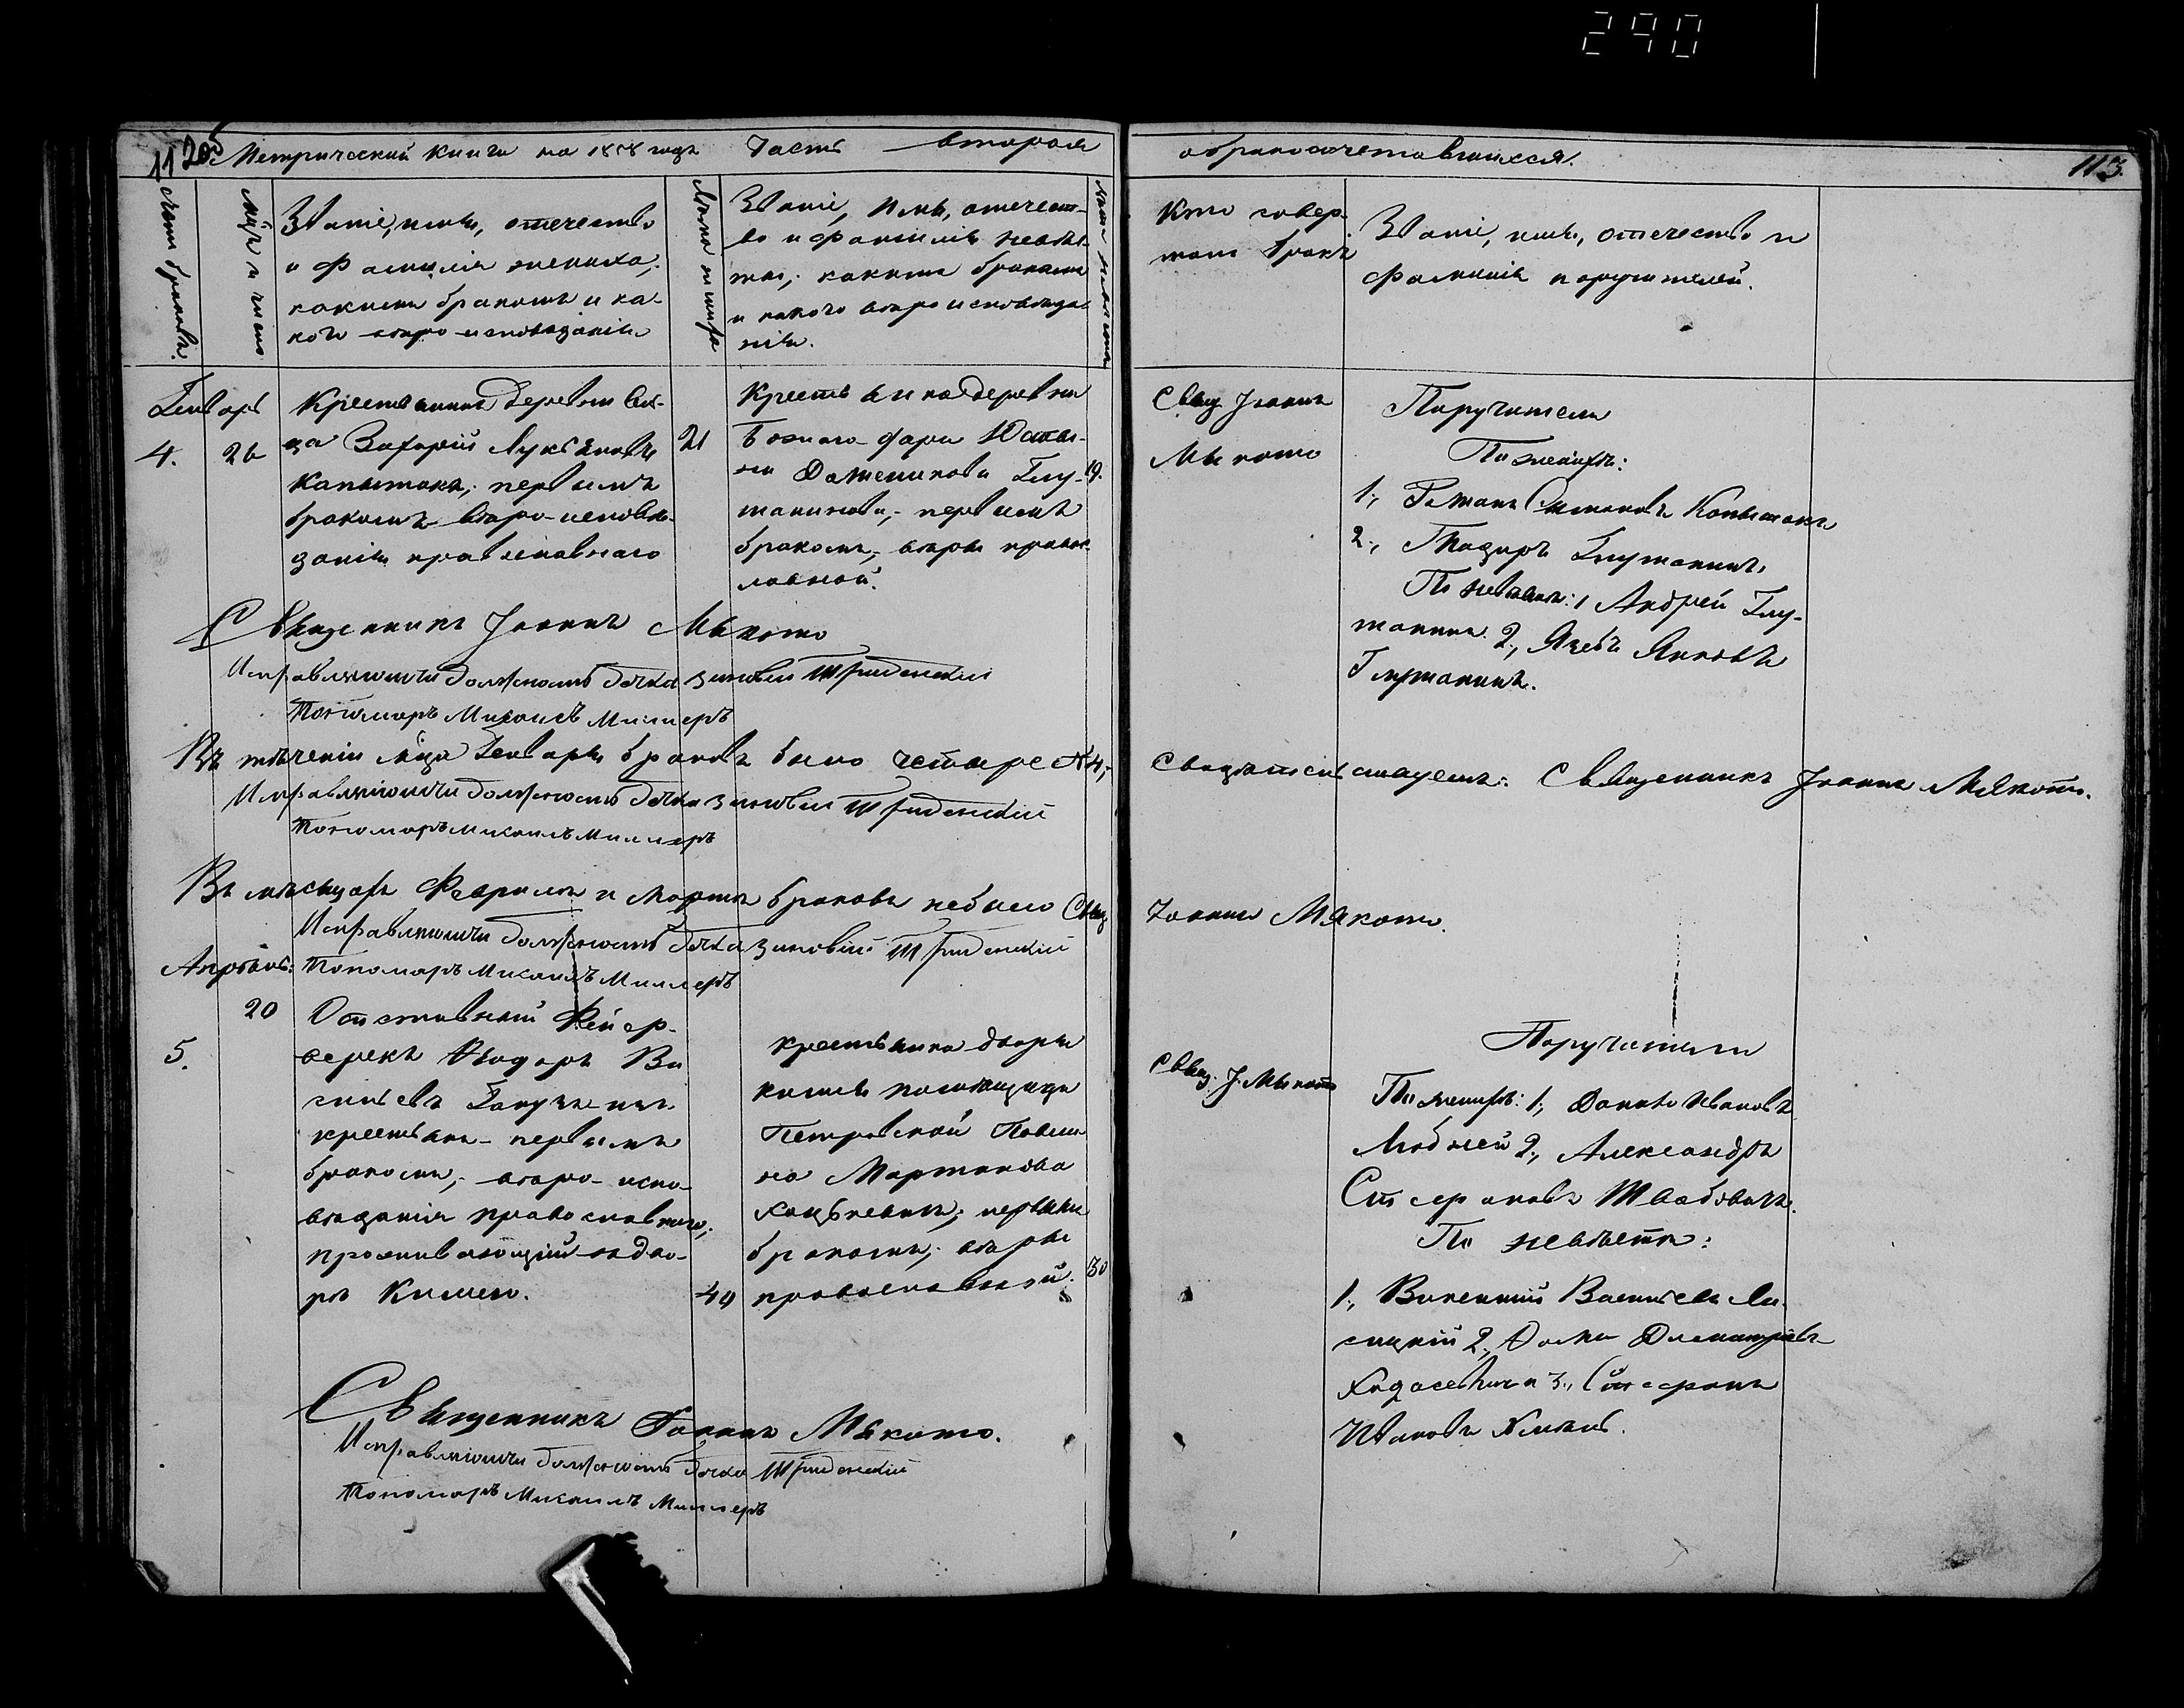 290
Метрической книги на 1858 годъ Часть вторая
о бракосочетавшихся.
113.
Счетъ браковъ.
Мѣсяцъ и число
Званіе, имя, отечество
и фамилія жениха,
какимъ бракомъ и ка-
кого вѣро-исповѣданія
Лѣта жениха
Званіе, имя, отечест-
во и фамилія невѣс-
ты, какимъ бракомъ
и какого вѣроисповѣда-
нія.
Лѣта невѣсты
Кто совер-
шалъ бракъ
Званіе, имя, отечество и
фамилія поручителей.
Генварь
4.
26
Крестьянинъ деревни
Захарій Лукьяновъ
Капытокъ, первымъ
бракомъ вѣро-исповѣ-
данія православнаго
21
Крестьянка деревни
Божаго-дара Юсты-
на Глу-
шанинова, первымъ
бракомъ, вѣры правос-
лавной.
19.
Свящ. Іоаннъ
Мякота
Поручители
По женихѣ:
1., Романъ Симоновъ Копытокъ
2., Тодоръ Глушанинъ.
По невѣстѣ: 1 Андрей Глу-
шанинъ 2., Яковъ
Глушанинъ.
Священникъ Іоаннъ Мякота
Исправляющій должность дячка Зиновій
Пономаръ Михаилъ Миллеръ
Въ теченіи мѣсяца Генваря браковъ было четыре №4,
Исправляющій должность дячка Зиновій
Пономаръ Михаилъ Миллеръ
Священникъ Іоаннъ Мякота.
Въ мѣсяцахъ Февралѣ и Мартѣ браковъ небыло Свящ
Іоаннъ Мякота.
Исправляющій должность дячка Зиновій
Пономаръ Михаилъ Миллеръ
Апрѣль:
20
5.
Отставный Фейер-
веркъ Ѳеодоръ Ва
сильевъ
крестьян- первымъ
бракомъ, вѣро-испо-
вѣданія православнаго,
проживающій въ дво-
рѣ
40
крестьянка двора
помѣщицы
Петровской Павли-
на Мартинова
первымъ
бракомъ, вѣры
православной.
30
Свящ. І. Мякота
Поручители
По женихѣ: 1., Данило Ивановъ
2., Александръ
Стефановъ
По невѣстѣ:
1., Викентій Васильевъ Ли-
сицкій 2., Ѳома Димитріевъ
Ходасевичъ 3., Стефанъ
Ивановъ
Священникъ Іоаннъ Мякота.
Исправляющій должность дячка
Пономаръ Михаилъ Миллеръ